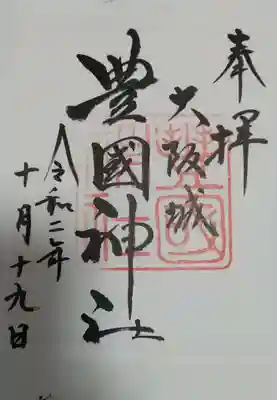 奉拝
大阪城
豊國神社
令和二年
十月十九日